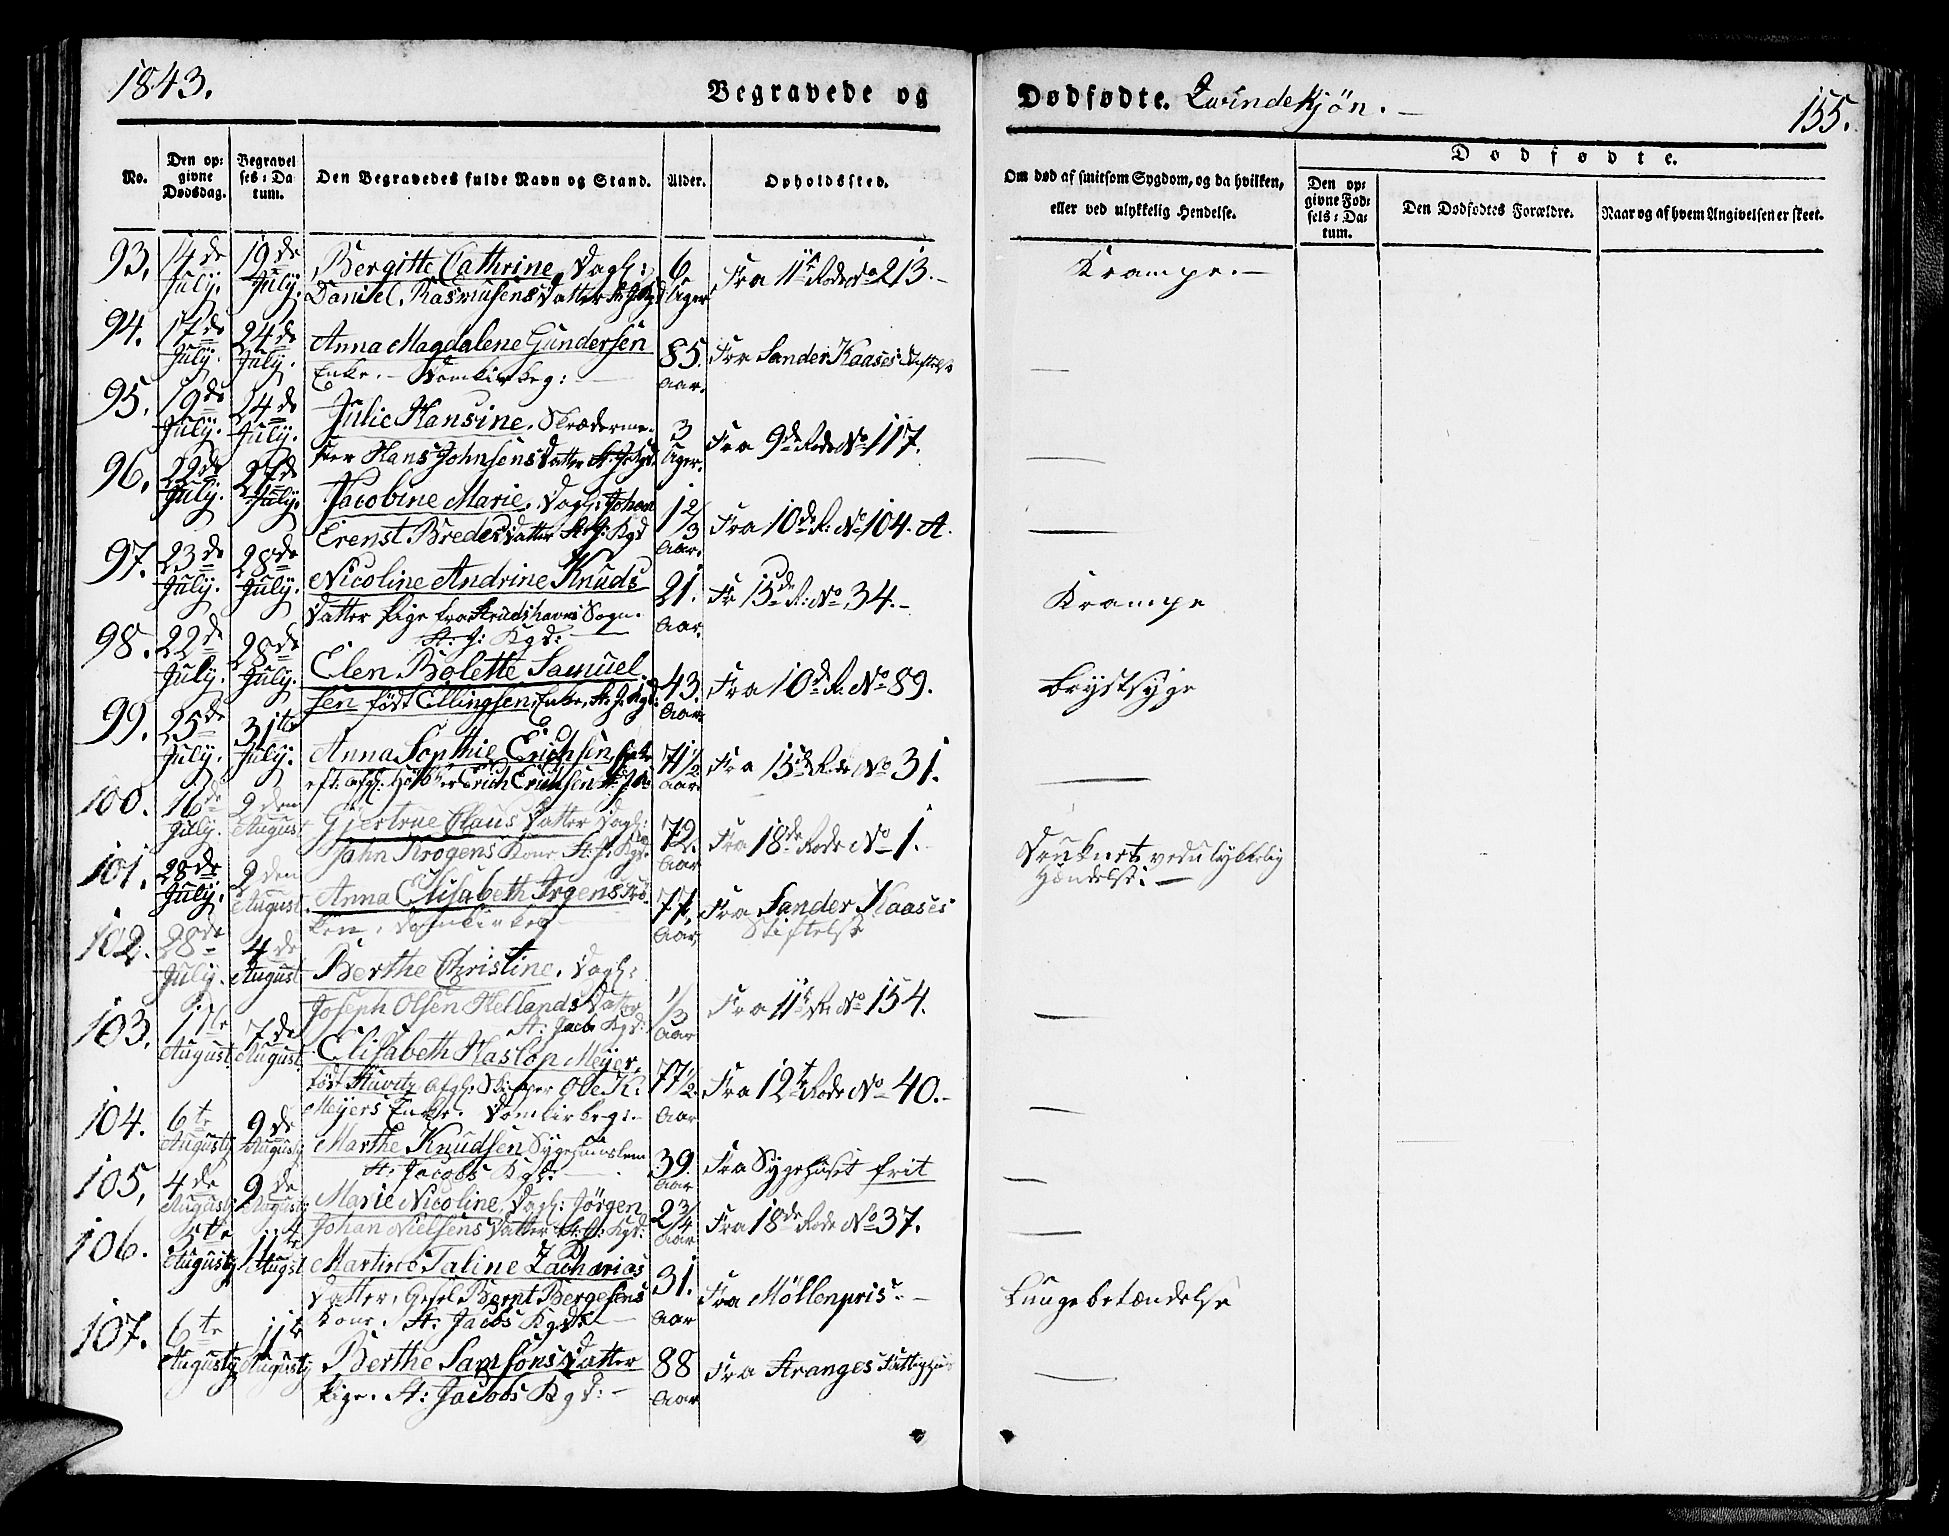 1843.
Begravede og
Dødfødte. Qvindekjøn. —
155.
No.
Den opgivne Dødsdag.
Begravelses-Datum.
Den Begravedes fulde Navn og Stand.
Alder.
Opholdssted.
Om død af smitsom Sygdom, og da hvilken,
eller ved ulykkelig Hendelse.
Dødfødte.
Den opgivne Fødsels-Datum.
Den Dødfødtes Forældre.
Naar og af hvem Angivelsen er skeet.
93. 14de July. 19de July. Bergitte Cathrine, Dagl: 6 Uger Fra 11te Rode No 213. — Krampe. —
Daniel Rasmusens Datter St. J. Kgd
94. 17de July. 24de July. Anna Magdalene Gundersen 85. Aar. Fra Sander Kaases Stiftelse —
Enke. — Domkirkeg: —
95. 19de July. 24de July. Julie Hansine, Skræderme- 3 Uger. Fra 9de Rode No 117. —
ster Hans Johnsens Datter St. J. Kgd.
96. 22de July. 27de July. Jacobine Marie, Dagl: Johan 1 2/3 Aar. Fra 10de R: No 104. A. —
Erenst Bredes Datter St. J: Kgd
97. 23de July. 28de July. Nicoline Andrine Knuds 21. Aar. Fr 15de R: No 34. — Krampe
Datter Pige fra Sogn.
St: J: Kgd: —
98. 22de July. 28de July. Elen Bolette Samuel 43. Aar. Fra 10de R. No 89. Brystsyge
sen født Ellingsen, Enke, St. J. Kgd.
99. 25de July. 31te July. Anna Sophie Erichsen, Enke 71 1/2 Aar. Fra 15de Rode No 31. —
eft. afgl: Erich Erichsen St. J. K
100. 16de July. 2den August Gjertrue Claus Datter Dagl: 72. Aar Fra 18de Rode No 1. Druknet ved ulykkelig
John Krogens Kone St. J. Kgd. Hændelse. —
101. 28de July. 2den August. Anna Elisabeth Irgens Frø- 77. Aar Fra Sander Kaases
ken, Domkirkeg Stiftelse
102. 28de July. 4de August Berthe Christine, Dagl: 1/3 Aar Fra 11te R. No 154. —
Joseph Olsen Hellands Datter
St: Jacobs Kgd:
103. 1ste August. 7de August. Elisabeth Haslop Meyer, 77 1/2. Aar Fra 12te Rode No 40. — —
født Stuwitz Afgl: Skipper Ole K.
Meyers Enke. Domkirkeg: —
104. 6te August 9de August Marthe Knudsen Sygehuuslem 39. Aar Fra Sygehuset frit —
St: Jacobs Kgd: —
105. 4de August 9de August Marie Nicoline, Dagl: Jørgen 2 3/4 Aar Fra 18de Rode No 37. —
Johan Nielsens Datter St. J. Kgd:
106. 5te August 11te August Martine Taline Zacharias 31. Aar Fra Möllenpris. — Lungebetændelse
Datter, Gesel Bernt Bergesens
Kone. St. Jacobs Kgd. —
107. 6te August 11te August Berthe Samsons Datter 88 Aar Fra Stranges Fattighus —
Pige. St: Jacobs Kgd: —